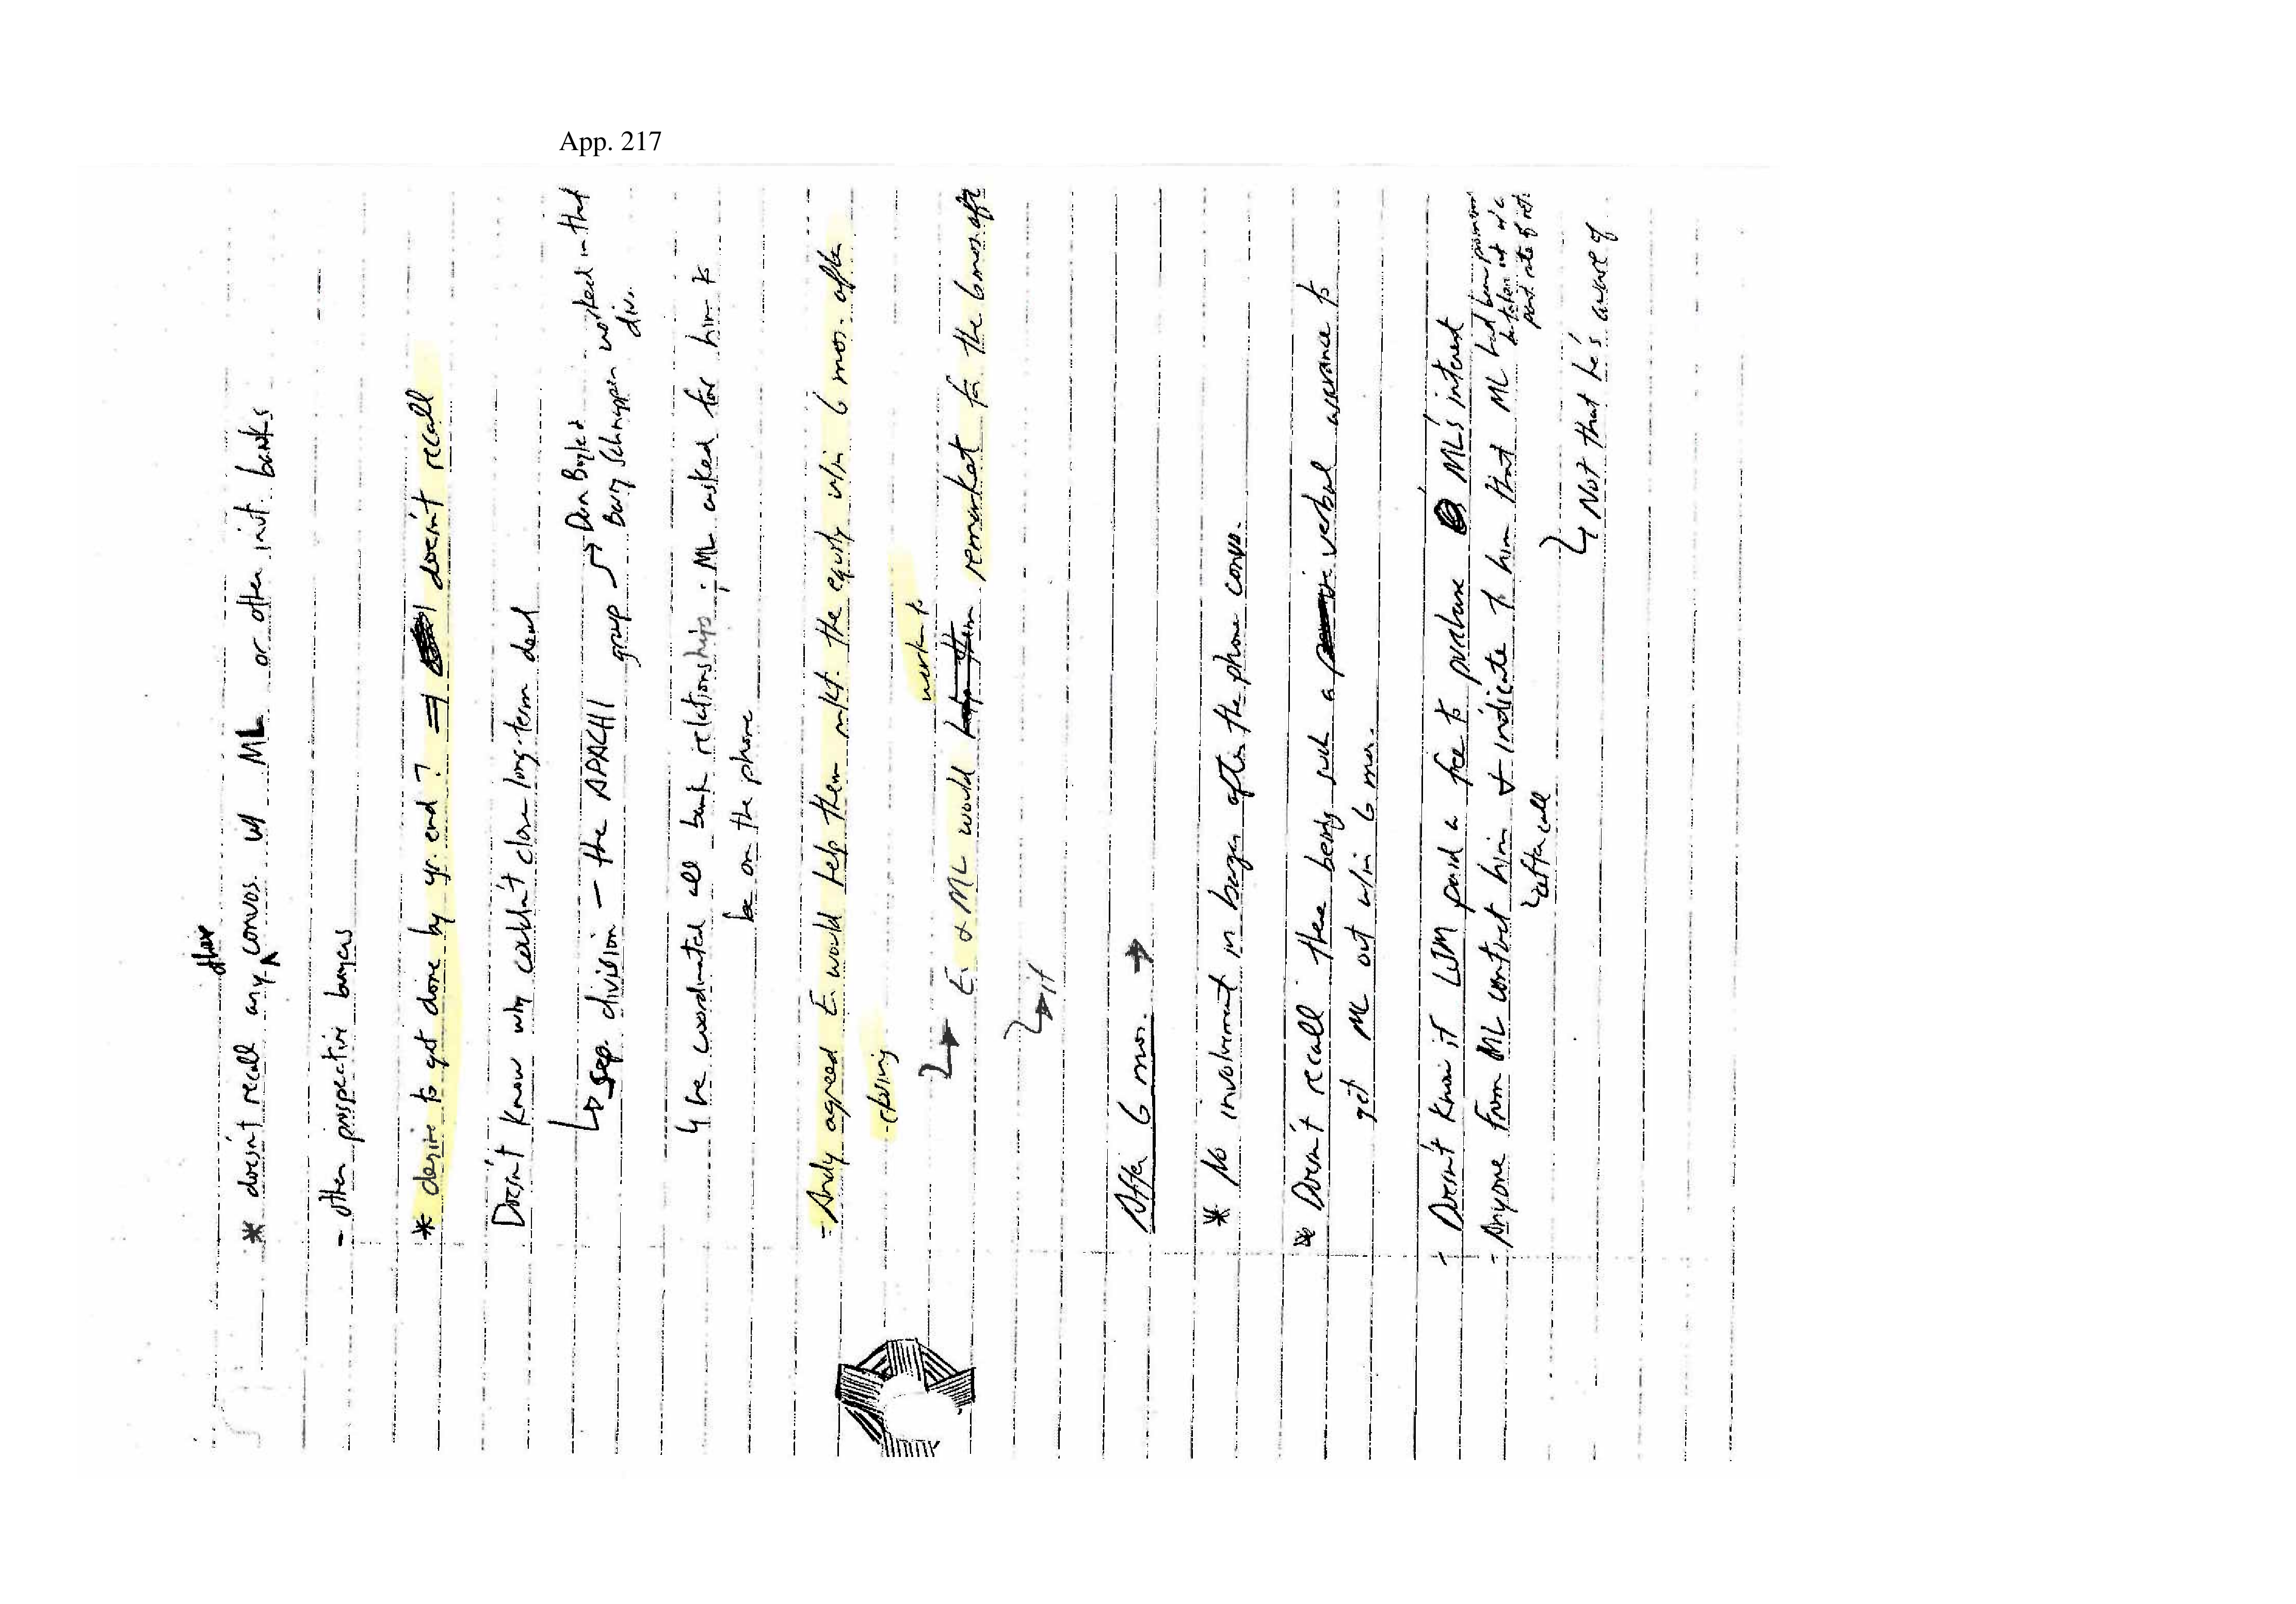 App. 217
other
* doesn't recall any convos. w/ ML or other inst. banks
- other prospective buyers
* desire to get done by yr. end? ⇒ doesn't recall
Doesn't know why couldn't close long-term deal
↳ sep. division — the APACHI group → Dan Boyle &
Barry Schnapper worked in that
div.
↳ he coordinated all bank relationships; ML asked for him to
be on the phone
- Andy agreed E. would help them mkt. the equity w/in 6 mos. after
closing
work to
↳ E. & ML would help them remarket for the 6 mos. aft
↳ it
After 6 mos. →
* No involvement in barges after the phone convo.
* Doesn't recall there being such a verbal assurance to
get ML out w/in 6 mos.
- Doesn't know if LJM paid a fee to purchase ML's interest
- Anyone from ML contact him & indicate to him that ML had been
be taken out w/ a
rate of ret.
↳ after call
↳ Not that he's aware of